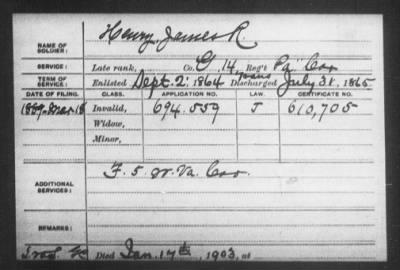 NAME OF SOLDIER: Henry, James R.
SERVICE: Late rank, Co. G, 14, Reg't Pa Cav
TERM OF SERVICE: Enlisted Sept. 2, 1864 Discharged July 31, 1865
DATE OF FILING. CLASS. APPLICATION NO. LAW. CERTIFICATE NO.
1889-Mar 18 Invalid, 694.559 J 610,705
Widow,
Minor,
ADDITIONAL SERVICES: F. 5 W. Va. Cav.
REMARKS:
Died Jan. 17th, 1903, at